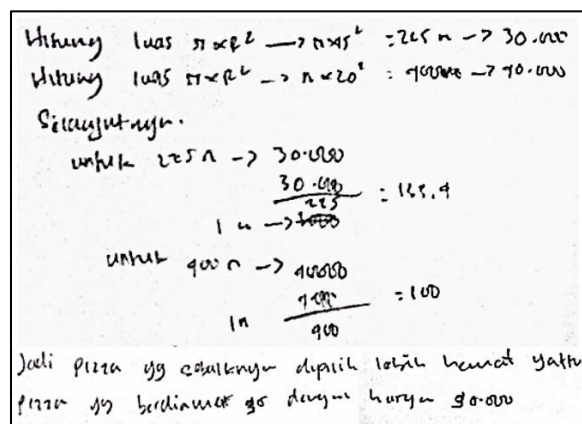 Hitung luas π×R² → π×15² = 225 π → 30.000
Hitung luas π×R² → π×20² = 400 → 40.000
Selanjutnya.
untuk 225 π → 30.000
30.000
225
= 133.4
1 π →
untuk 400 π → 40000
1π
400
= 100
Jadi pizza yg sebaiknya dipilih lebih hemat yaitu
pizza yg berdiamet dengan harga